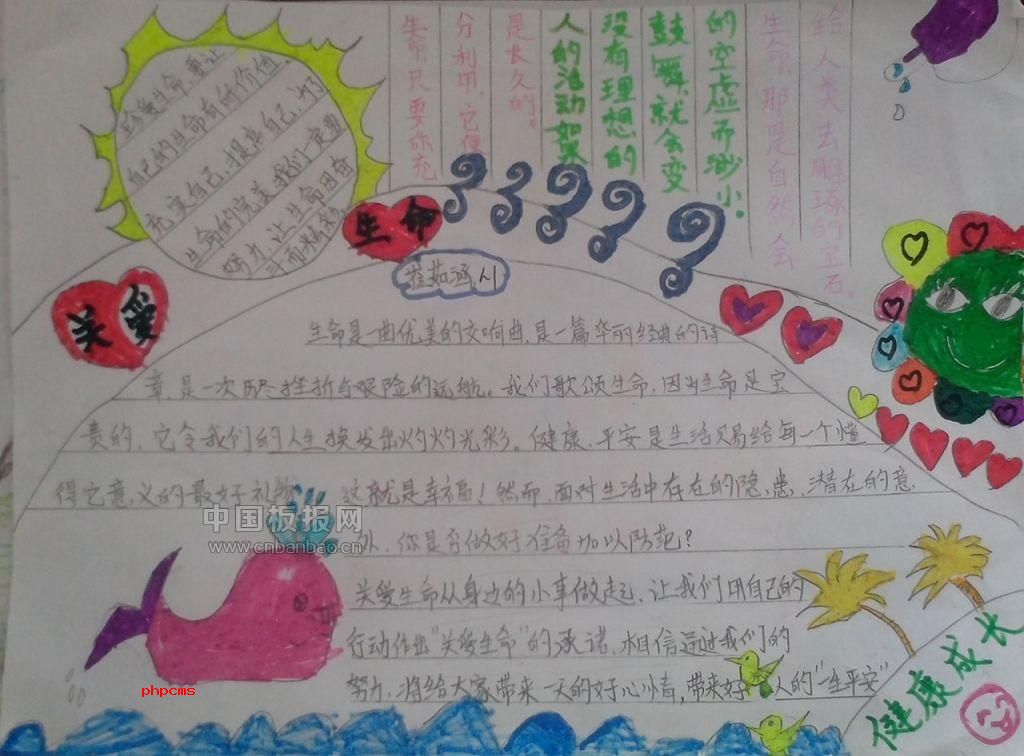 珍爱生命,要让
自己的生命有所价值、
充实自己,提高自己,为
生命的完美,我们一定要
努力,让生命因奋
斗而精彩
给人类去雕琢的宝石。
生命,那是自然会
的空虚而渺小。
鼓舞,就会变
没有理想的
人的活动如果
是长久的。
分利用,它便
生命,只要你充
生命
关爱
崔茹涵
生命是一曲优美的交响曲,是一篇华丽经典的诗
章,是一次历尽挫折与艰险的远航。我们歌颂生命,因为生命是宝
贵的,它令我们的人生焕发出灼灼光彩。健康、平安是生活赐给每一个懂
得它意义的最好礼物 这就是幸福!然而,面对生活中存在的隐患,潜在的意
外,你是否做好准备加以防范?
关爱生命从身边的小事做起,让我们用自己的
行动作出"关爱生命"的承诺,相信通过我们的
努力,将给大家带来一天的好心情,带来好人的"一生平安"
健康成长
中国板报网
www.cnbanbao.cn
phpcms